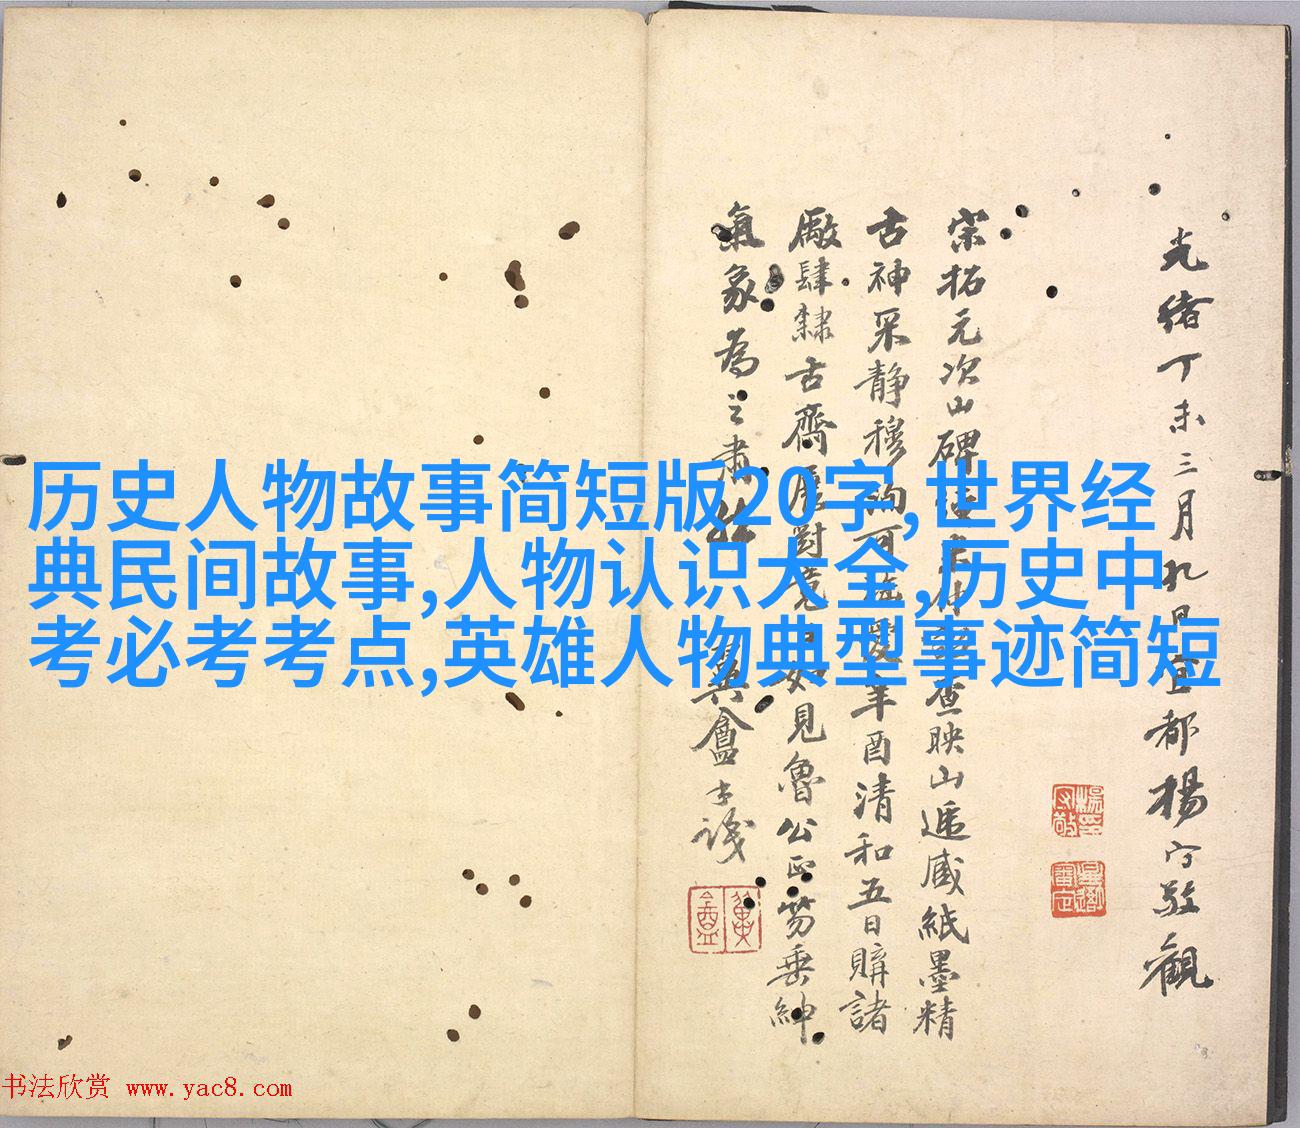 历史人物故事简短版20字,世界经
典民间故事,人物认识大全,历史中
考必考考点,英雄人物典型事迹简短
光绪丁未三月九日宜都楊守敬觀
宋拓元次山碑查映山遞藏紙墨精
古神采静穆洵可辛酉清和五日購諸
廠肆隸古齋對見魯公正笏垂紳
氣象為之肅
書法欣赏 www.yac8.com